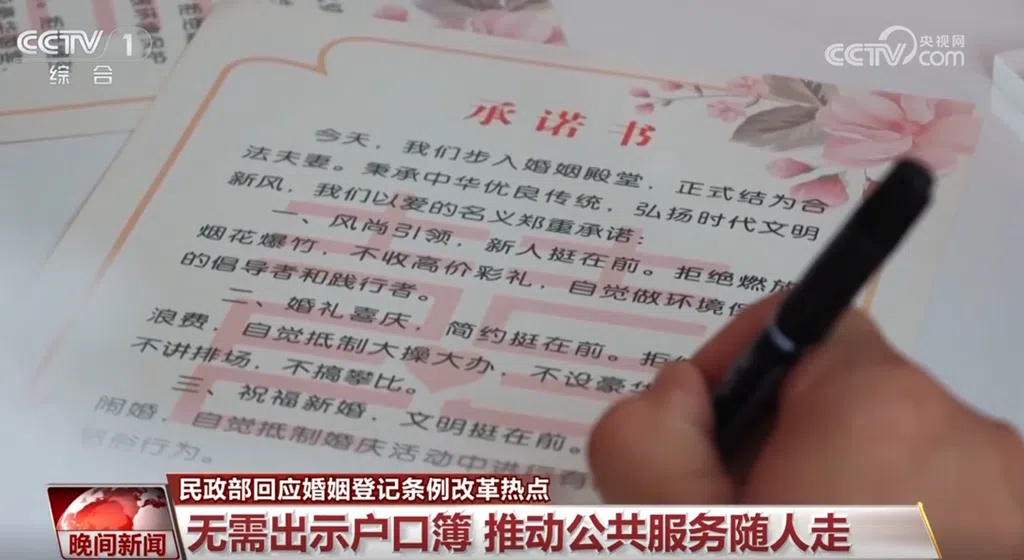 CCTV 1
综合
央视网
CCTV.com
承诺书
今天，我们步入婚姻殿堂，正式结为合
法夫妻。秉承中华优良传统，弘扬时代文明
新风，我们以爱的名义郑重承诺：
一、风尚引领，新人挺在前。拒绝燃放
烟花爆竹，不收高价彩礼，自觉做环境保
的倡导者和践行者。
二、婚礼喜庆，简约挺在前。拒
浪费，自觉抵制大操大办，不设豪华
不讲排场，不搞攀比。
三、祝福新婚，文明挺在前。
闹婚，自觉抵制婚庆活动中进行有
俗行为。
民政部回应婚姻登记条例改革热点
晚间新闻
无需出示户口簿 推动公共服务随人走